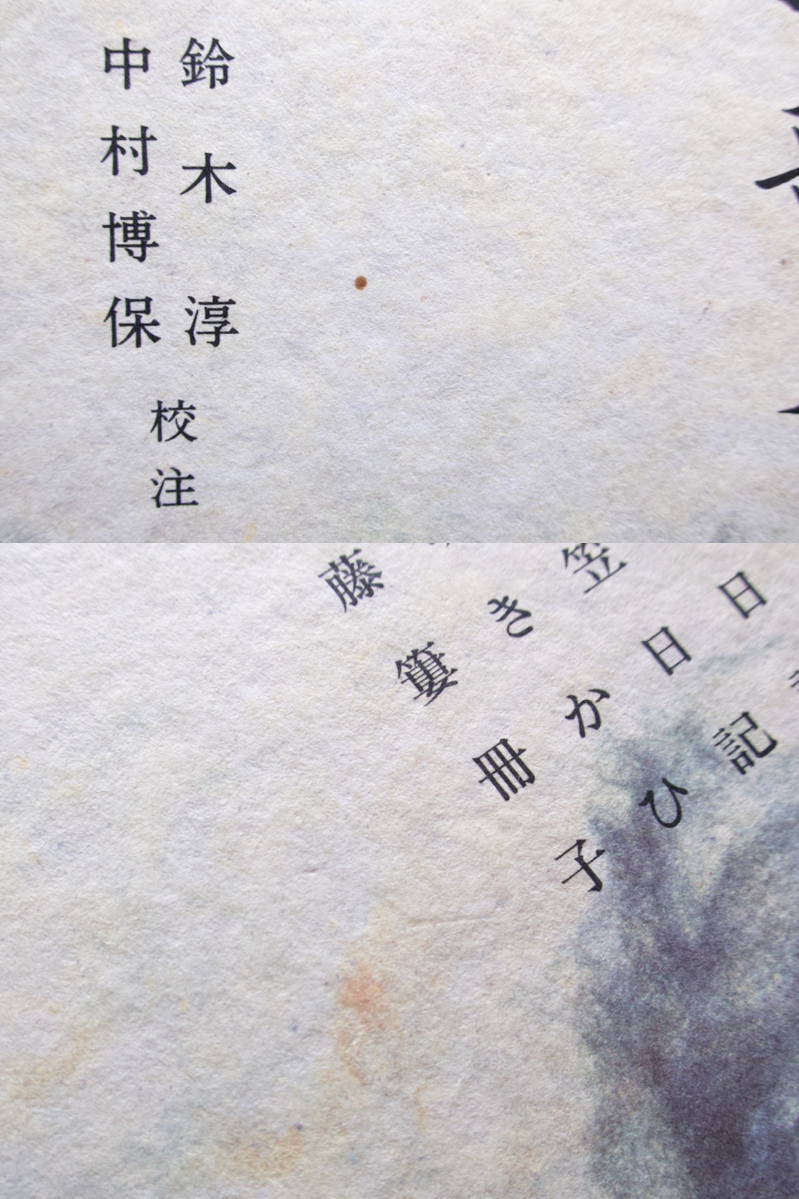 鈴木淳
中村博保
校注
日
笠日記
きかひ
藤簍冊子